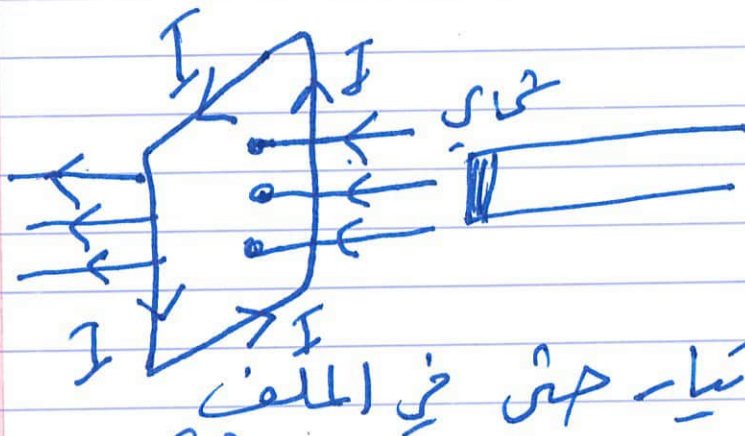 I
I
شمالي
I
I
تيار حثي في الملف